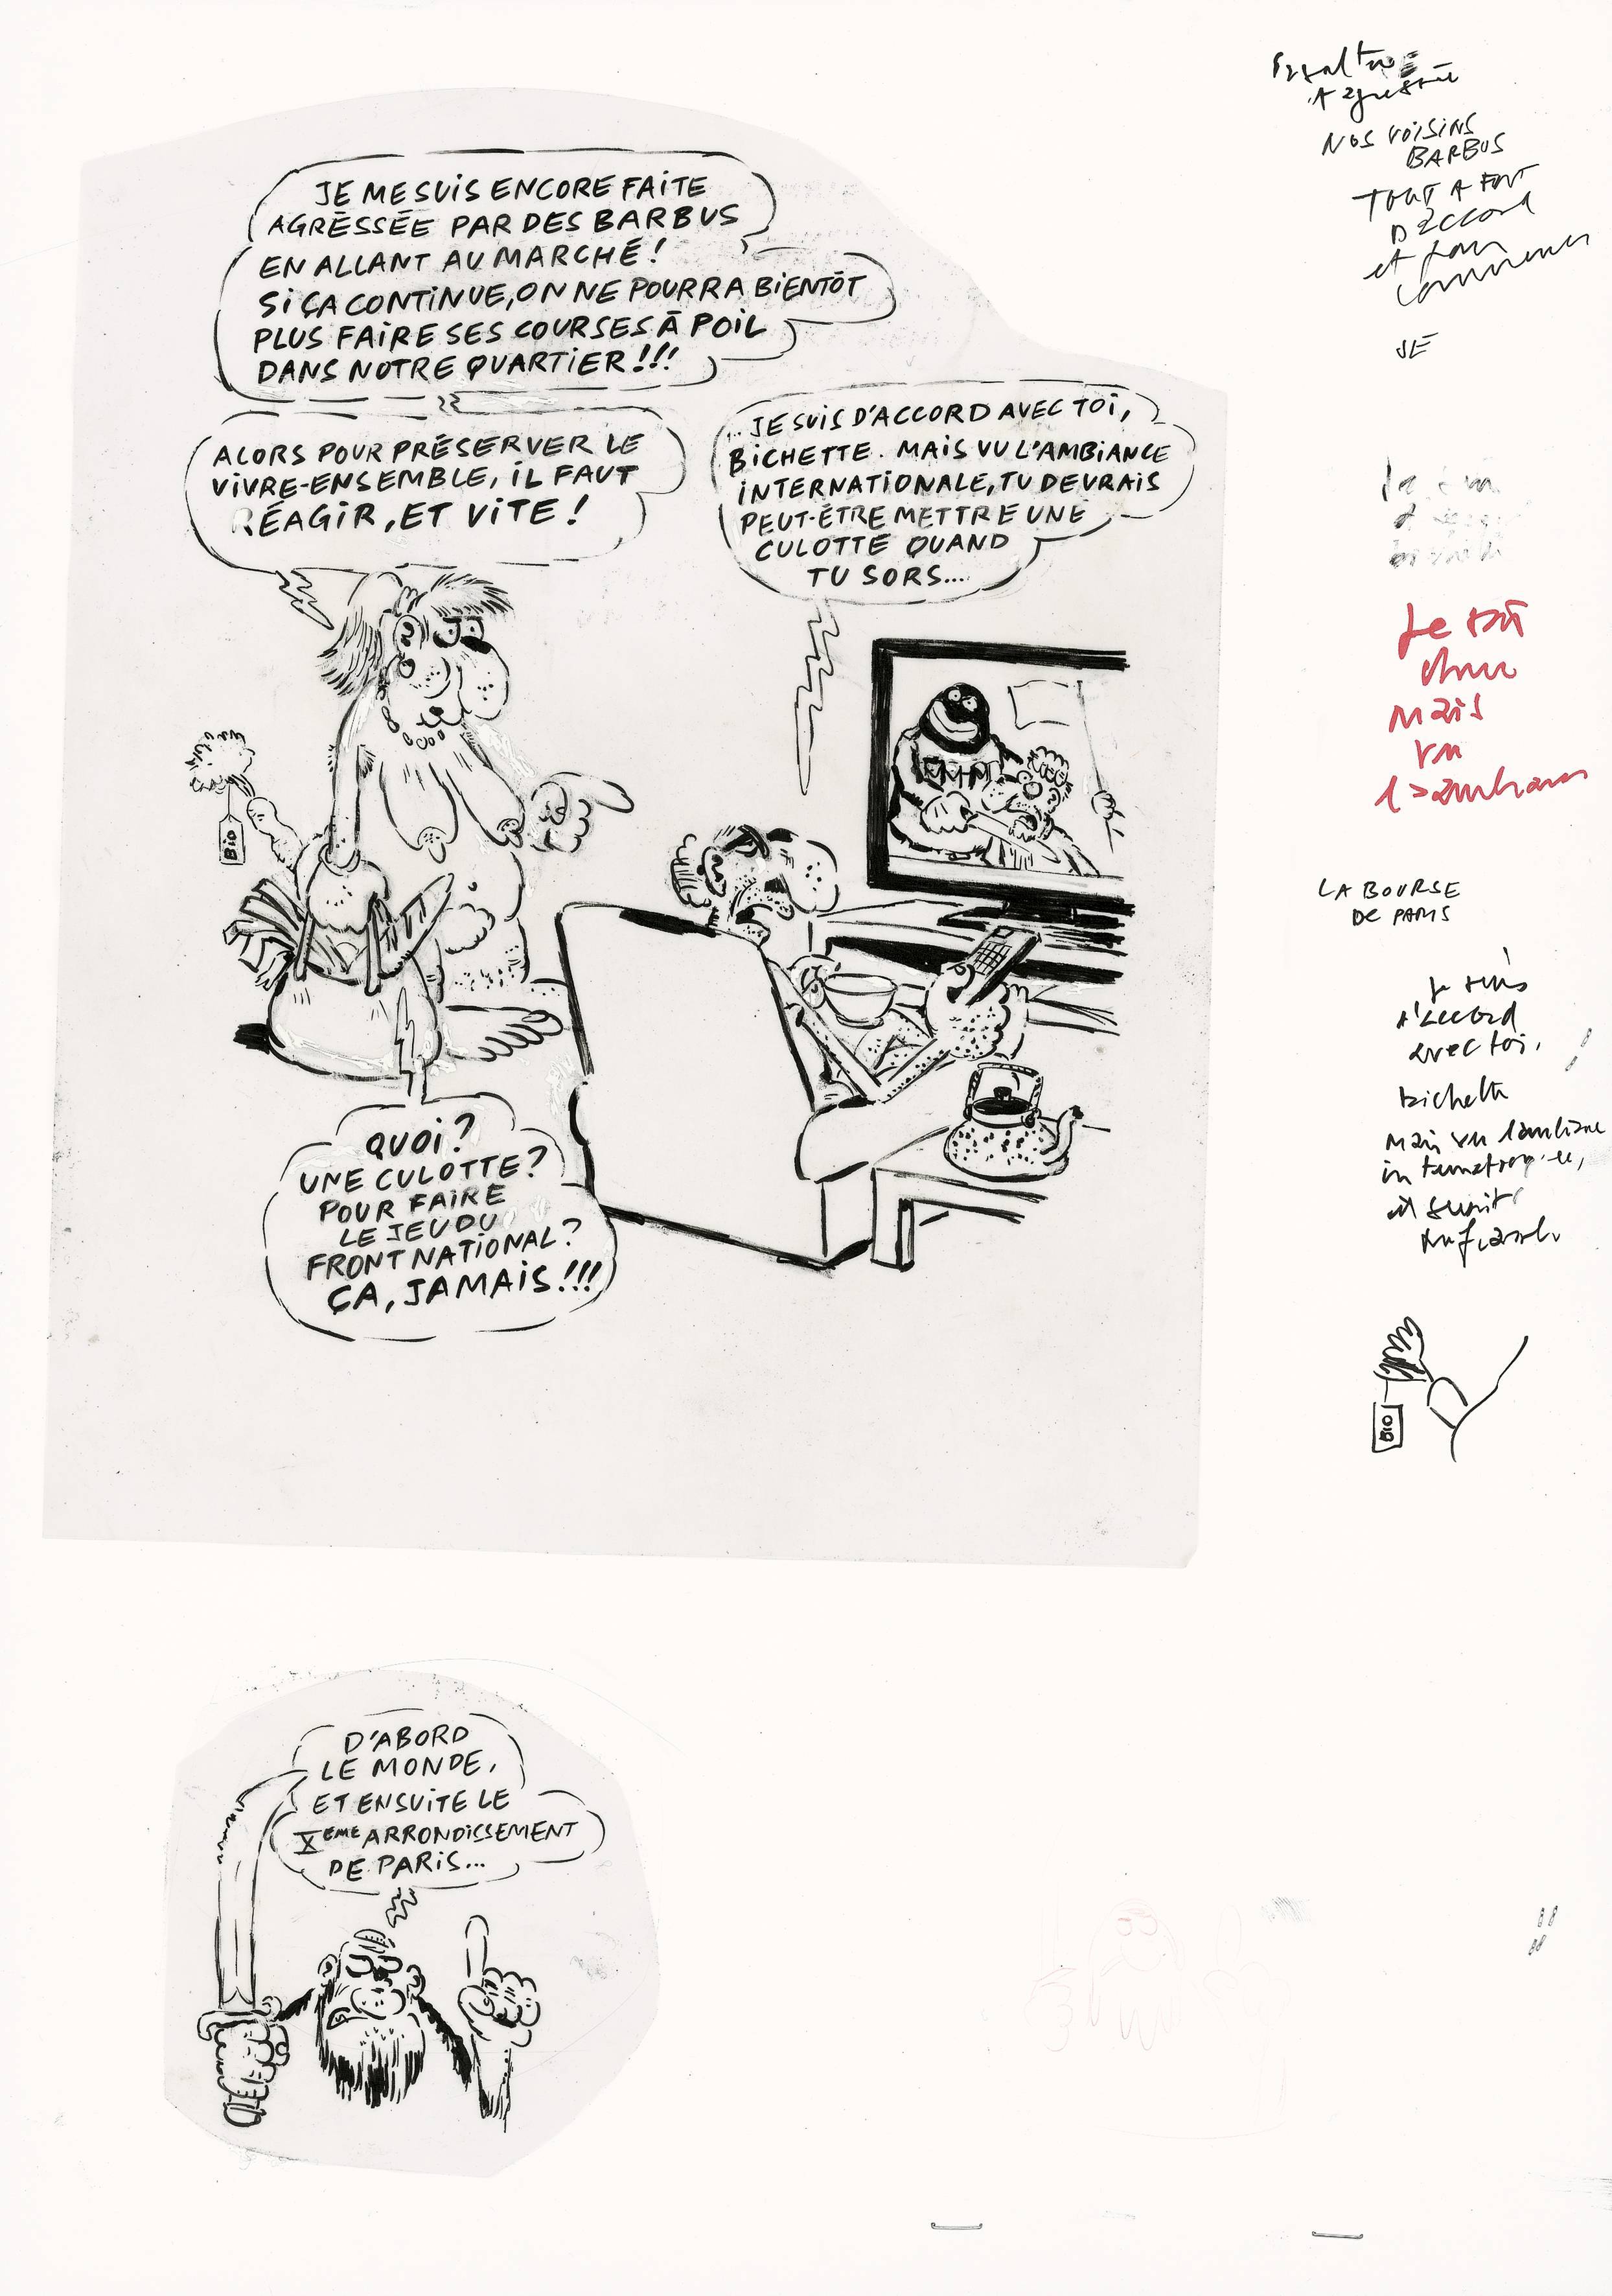 JE ME SUIS ENCORE FAITE
AGRÉSSÉE PAR DES BARBUS
EN ALLANT AU MARCHÉ!
SI ÇA CONTINUE, ON NE POURRA BIENTÔT
PLUS FAIRE SES COURSES À POIL
DANS NOTRE QUARTIER!!!
ALORS POUR PRÉSERVER LE
VIVRE-ENSEMBLE, IL FAUT
RÉAGIR, ET VITE!
JE SUIS D'ACCORD AVEC TOI,
BICHETTE. MAIS VU L'AMBIANCE
INTERNATIONALE, TU DEVRAIS
PEUT-ÊTRE METTRE UNE
CULOTTE QUAND
TU SORS...
BIO
QUOI?
UNE CULOTTE?
POUR FAIRE
LE JEU DU
FRONT NATIONAL?
ÇA, JAMAIS!!!
D'ABORD
LE MONDE,
ET ENSUITE LE
XÈME ARRONDISSEMENT
DE PARIS...
NOS VOISINS
BARBUS
TOUT A FAIT
D'accord
et
SE
Je
mais
vu
l'ambiance
LA BOURSE
DE PARIS
Je suis
d'accord
avec toi,
bichette
mais vu l'ambiance
BIO